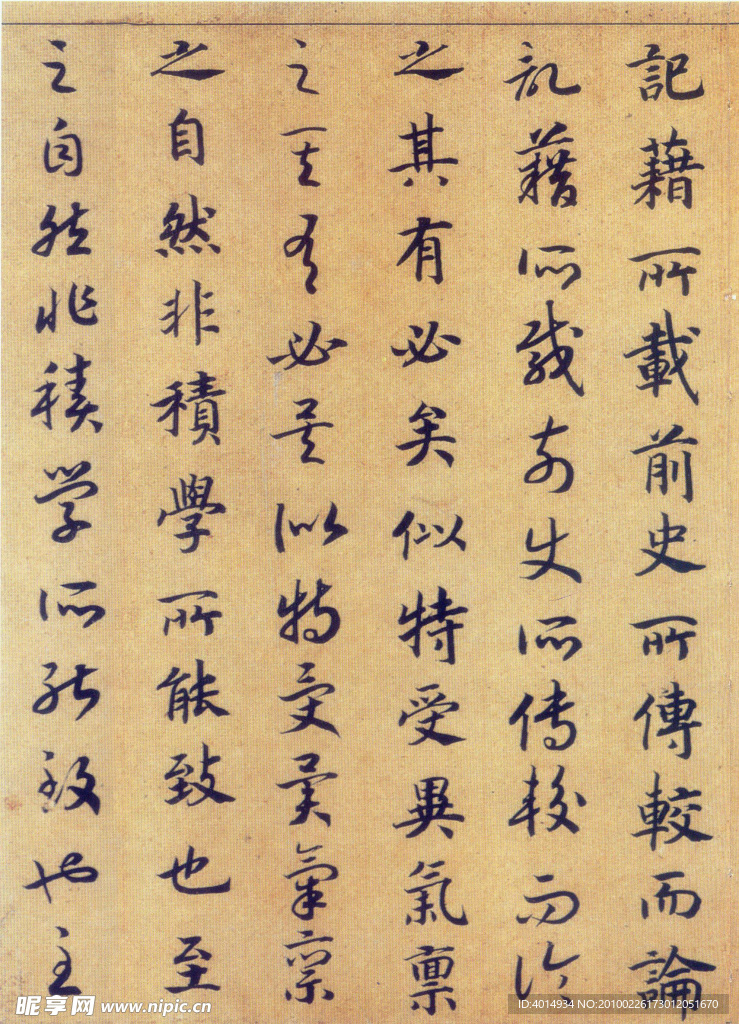 記藉所載前史所傳較而論
記藉所載前史所傳較而論
之其有必矣似特受異氣稟
之其有必矣似特受異氣稟
之自然非積學所能致也至
之自然非積學所能致也至
昵享网 www.nipic.cn
ID:4014934 NO:20100226173012051670